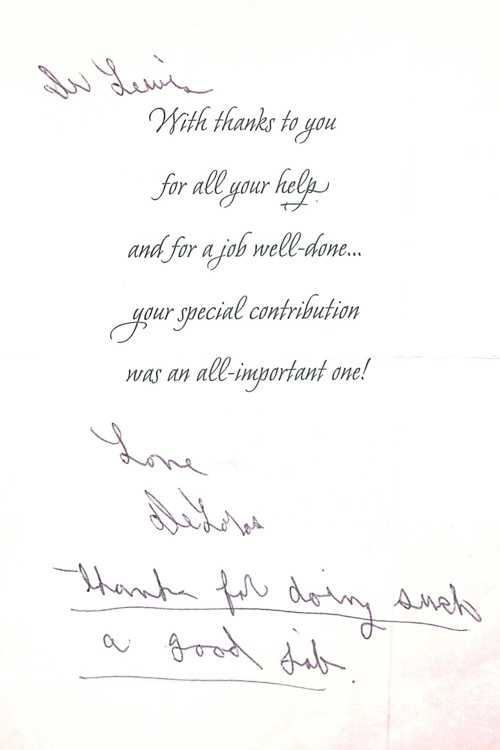 Dr Lewis
With thanks to you
for all your help
and for a job well-done...
your special contribution
was an all-important one!
Love
DeLoras
Thanks for doing such
a good job.